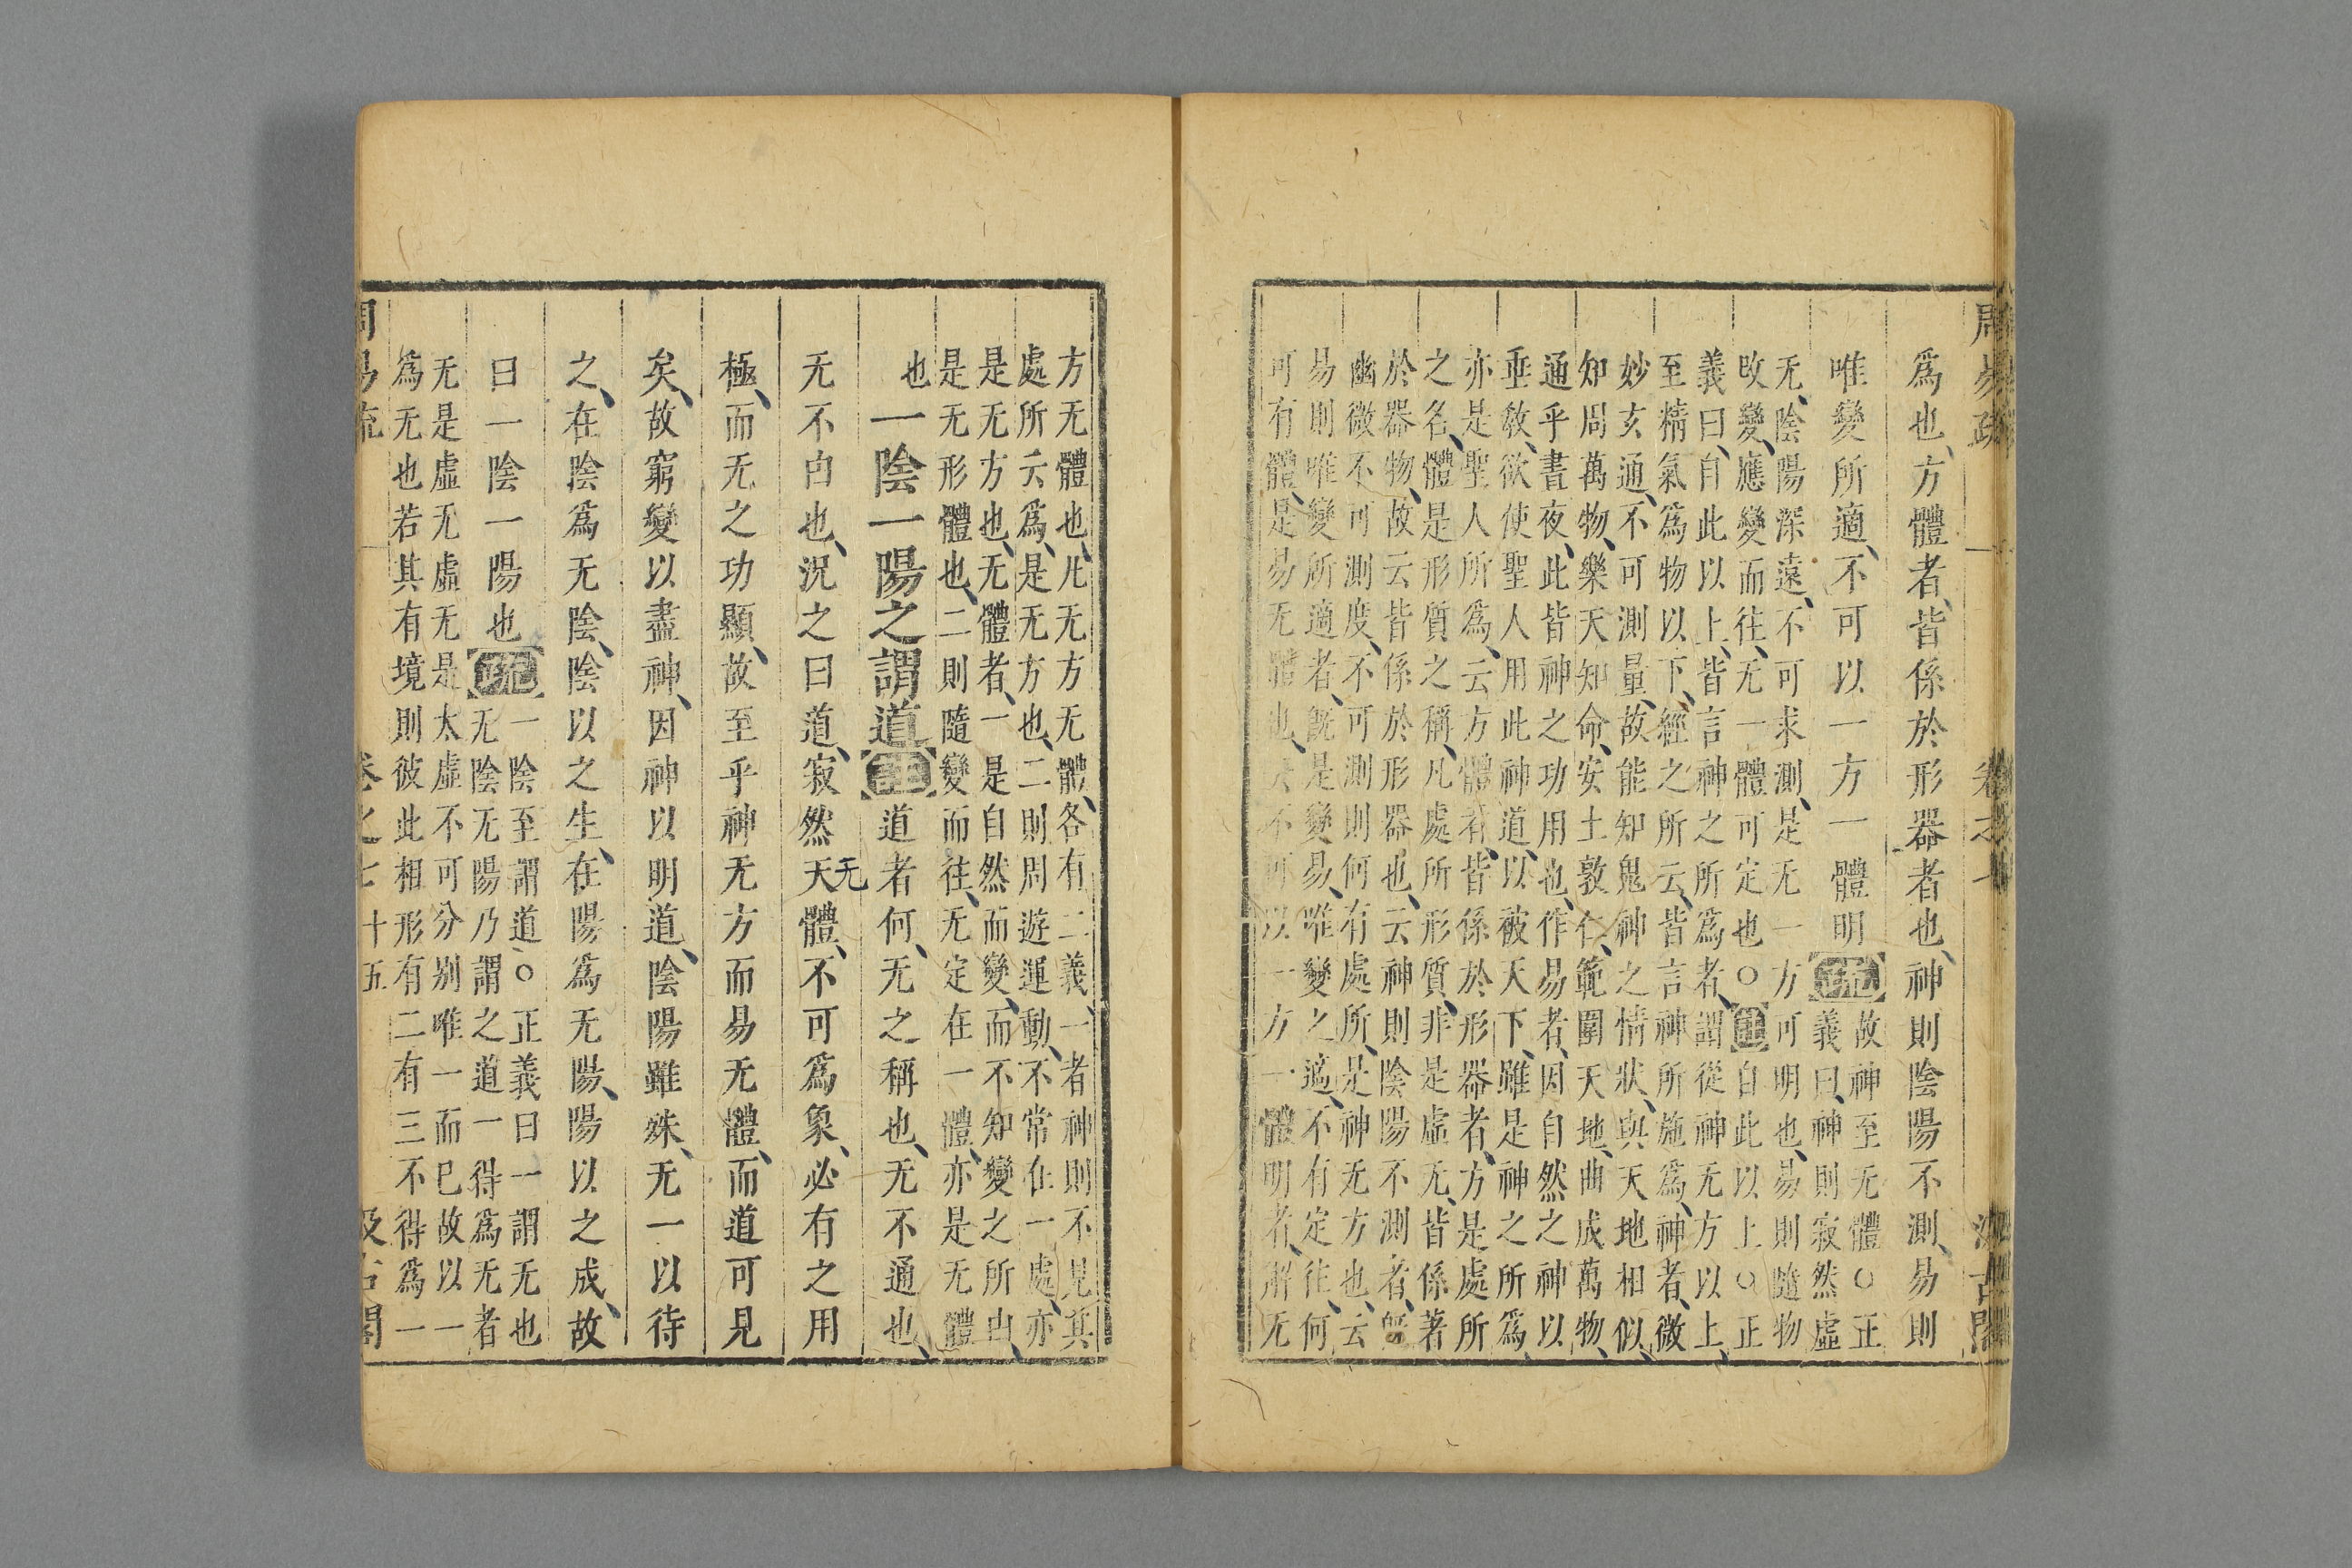 周易疏 卷之七 汲古閣
爲也、方體者、皆係於形器者也、神則陰陽不測、易則
唯變所適、不可以一方一體明疏
故神至无體○正
義曰、神則寂然虛
无、陰陽深遠、不可求測、是无一方可明也、易則隨物
攺變、應變而往、无一體可定也○注自此以上○正
義曰、自此以上、皆言神之所爲者、謂從神无方以上、
至精氣爲物以下、經之所云、皆言神所施爲、神者、微
妙玄通、不可測量、故能知鬼神之情狀、與天地相似、
知周萬物、樂天知命、安土敦仁、範圍天地、曲成萬物、
通乎晝夜、此皆神之功用也、作易者、因自然之神以
垂敎、欲使聖人用此神道、以被天下、雖是神之所爲、
亦是聖人所爲、云方體者、皆係於形器者、方是處所
之名、體是形質之稱、凡處所形質、非是虛无、皆係著
於器物、故云皆係於形器也、云神則陰陽不測者、旣
幽微不可測度、不可測則何有處所、是神无方也、云
易則唯變所適者、旣是變易、唯變之適、不有定往、何
可有體、是易无體也、云不可以一方一體明者、解无
方无體也、凡无方无體、各有二義、一者神則不見其
處所云爲、是无方也、二則周遊運動、不常在一處、亦
是无方也、无體者、一是自然而變、而不知變之所由、
是无形體也、二則隨變而往、无定在一體、亦是无體
也
一陰一陽之謂道注道者何、无之稱也、无不通也、
无不由也、況之曰道、寂然天體、不可爲象、必有之用
无
極、而无之功顯、故至乎神无方而易无體、而道可見
矣、故窮變以盡神、因神以明道、陰陽雖殊、无一以待
之、在陰爲无陰、陰以之生、在陽爲无陽、陽以之成、故
曰一陰一陽也疏
一陰至謂道○正義曰一謂无也
无陰无陽乃謂之道一得爲无者
无是虛无虛无是太虛不可分别唯一而已故以一
爲无也若其有境則彼此相形有二有三不得爲一
周易疏 卷之七 十五 汲古閣